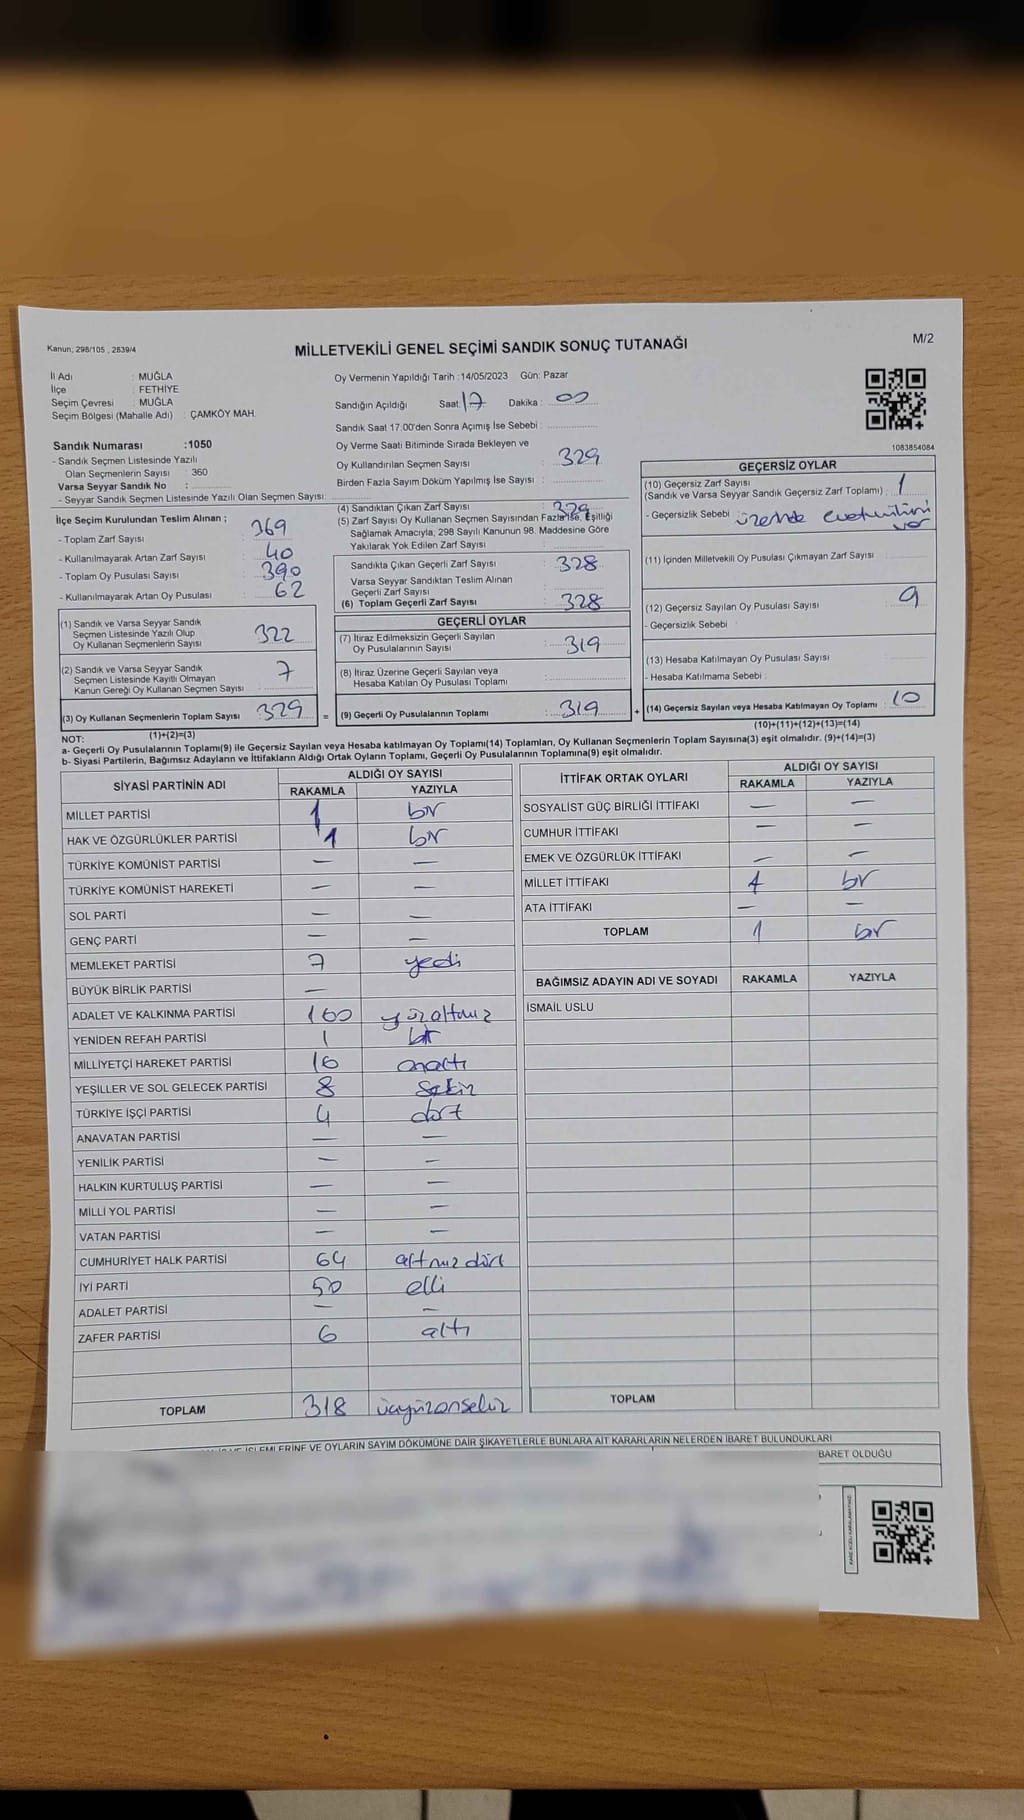 Kanun; 298/105 , 2839/4
MİLLETVEKİLİ GENEL SEÇİMİ SANDIK SONUÇ TUTANAĞI
M/2
İl Adı : MUĞLA
İlçe : FETHİYE
Seçim Çevresi : MUĞLA
Seçim Bölgesi (Mahalle Adı) : ÇAMKÖY MAH.
Sandık Numarası :1050
- Sandık Seçmen Listesinde Yazılı
Olan Seçmenlerin Sayısı : 360
Varsa Seyyar Sandık No :
- Seyyar Sandık Seçmen Listesinde Yazılı Olan Seçmen Sayısı:
Oy Vermenin Yapıldığı Tarih :14/05/2023 Gün: Pazar
Sandığın Açıldığı Saat: 17 Dakika : 00
Sandık Saat 17.00'den Sonra Açımış İse Sebebi :
Oy Verme Saati Bitiminde Sırada Bekleyen ve
Oy Kullandırılan Seçmen Sayısı : 329
Birden Fazla Sayım Döküm Yapılmış İse Sayısı :
1083854084
İlçe Seçim Kurulundan Teslim Alınan ;
- Toplam Zarf Sayısı : 369
- Kullanılmayarak Artan Zarf Sayısı : 40
- Toplam Oy Pusulası Sayısı : 390
- Kullanılmayarak Artan Oy Pusulası : 62
(1) Sandık ve Varsa Seyyar Sandık
Seçmen Listesinde Yazılı Olup
Oy Kullanan Seçmenlerin Sayısı : 322
(2) Sandık ve Varsa Seyyar Sandık
Seçmen Listesinde Kayıtlı Olmayan
Kanun Gereği Oy Kullanan Seçmen Sayısı : 7
(3) Oy Kullanan Seçmenlerin Toplam Sayısı : 329
(1)+(2)=(3)
(4) Sandıktan Çıkan Zarf Sayısı : 329
(5) Zarf Sayısı Oy Kullanan Seçmen Sayısından Fazla İse, Eşitliği
Sağlamak Amacıyla, 298 Sayılı Kanunun 98. Maddesine Göre
Yakılarak Yok Edilen Zarf Sayısı :
Sandıkta Çıkan Geçerli Zarf Sayısı : 328
Varsa Seyyar Sandıktan Teslim Alınan
Geçerli Zarf Sayısı :
(6) Toplam Geçerli Zarf Sayısı : 328
GEÇERLİ OYLAR
(7) İtiraz Edilmeksizin Geçerli Sayılan
Oy Pusulalarının Sayısı : 319
(8) İtiraz Üzerine Geçerli Sayılan veya
Hesaba Katılan Oy Pusulası Toplamı :
= (9) Geçerli Oy Pusulalarının Toplamı : 319 +
GEÇERSİZ OYLAR
(10) Geçersiz Zarf Sayısı
(Sandık ve Varsa Seyyar Sandık Geçersiz Zarf Toplamı) : 1
- Geçersizlik Sebebi : üzerinde
var
(11) İçinden Milletvekili Oy Pusulası Çıkmayan Zarf Sayısı :
(12) Geçersiz Sayılan Oy Pusulası Sayısı : 9
- Geçersizlik Sebebi :
(13) Hesaba Katılmayan Oy Pusulası Sayısı :
- Hesaba Katılmama Sebebi :
(14) Geçersiz Sayılan veya Hesaba Katılmayan Oy Toplamı : 10
(10)+(11)+(12)+(13)=(14)
NOT:
a- Geçerli Oy Pusulalarının Toplamı(9) ile Geçersiz Sayılan veya Hesaba katılmayan Oy Toplamı(14) Toplamları, Oy Kullanan Seçmenlerin Toplam Sayısına(3) eşit olmalıdır. (9)+(14)=(3)
b- Siyasi Partilerin, Bağımsız Adayların ve İttifakların Aldığı Ortak Oyların Toplamı, Geçerli Oy Pusulalarının Toplamına(9) eşit olmalıdır.
SİYASİ PARTİNİN ADI ALDIĞI OY SAYISI
RAKAMLA YAZIYLA
MİLLET PARTİSİ 1 bir
HAK VE ÖZGÜRLÜKLER PARTİSİ 1 bir
TÜRKİYE KOMÜNİST PARTİSİ — —
TÜRKİYE KOMÜNİST HAREKETİ — —
SOL PARTİ — —
GENÇ PARTİ — —
MEMLEKET PARTİSİ 7 yedi
BÜYÜK BİRLİK PARTİSİ —
ADALET VE KALKINMA PARTİSİ 160 yüzaltmız
YENİDEN REFAH PARTİSİ 1 bir
MİLLİYETÇİ HAREKET PARTİSİ 16 onaltı
YEŞİLLER VE SOL GELECEK PARTİSİ 8 sekiz
TÜRKİYE İŞÇİ PARTİSİ 4 dört
ANAVATAN PARTİSİ — —
YENİLİK PARTİSİ — —
HALKIN KURTULUŞ PARTİSİ — —
MİLLİ YOL PARTİSİ — —
VATAN PARTİSİ — —
CUMHURİYET HALK PARTİSİ 64 altmız dört
İYİ PARTİ 50 elli
ADALET PARTİSİ — —
ZAFER PARTİSİ 6 altı
TOPLAM 318 üçyüzonsekiz
İTTİFAK ORTAK OYLARI ALDIĞI OY SAYISI
RAKAMLA YAZIYLA
SOSYALİST GÜÇ BİRLİĞİ İTTİFAKI — —
CUMHUR İTTİFAKI — —
EMEK VE ÖZGÜRLÜK İTTİFAKI — —
MİLLET İTTİFAKI 1 bir
ATA İTTİFAKI — —
TOPLAM 1 bir
BAĞIMSIZ ADAYIN ADI VE SOYADI RAKAMLA YAZIYLA
İSMAİL USLU
TOPLAM
İŞLEMLERİNE VE OYLARIN SAYIM DÖKÜMÜNE DAİR ŞİKAYETLERLE BUNLARA AİT KARARLARIN NELERDEN İBARET BULUNDUKLARI
BARET OLDUĞU